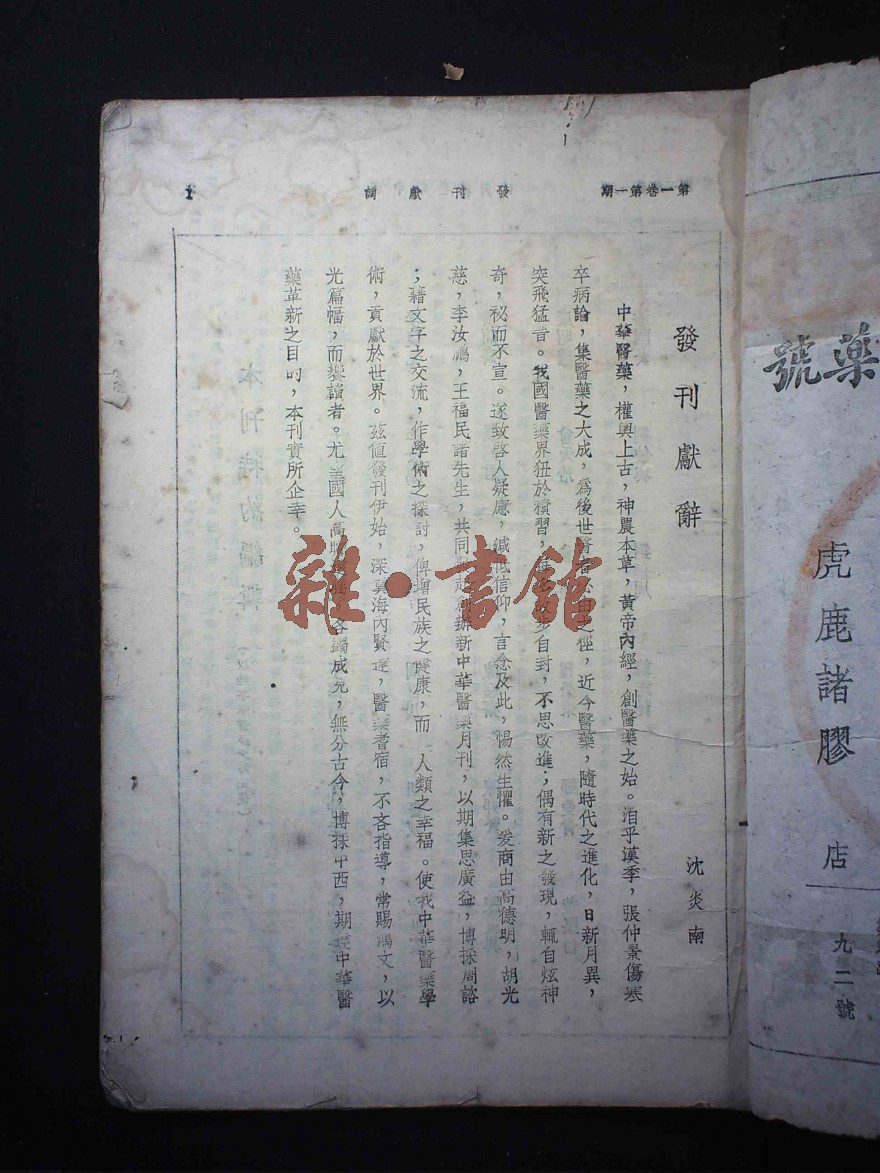 第一卷第一期
發刊獻詞
1
發刊獻辭
沈炎南
中華醫藥，權輿上古，神農本草，黃帝內經，創醫藥之始。洎乎漢季，張仲景傷寒
卒病論，集醫藥之大成，為後世 之徑，近今醫藥，隨時代之進化，日新月異，
突飛猛晉。我國醫藥界狃於積習， 步自封，不思改進；偶有新之發現，輒自炫神
奇，祕而不宣。遂致啓人疑慮，減低信仰，言念及此，惕然生懼。爰商由高德明，胡光
慈，李汝鵬，王福民諸先生，共同 辦新中華醫藥月刊，以期集思廣益，博採周諮
；藉文字之交流，作學術之探討，俾增民族之健康，而 人類之幸福。使我中華醫藥學
術，貢獻於世界。茲值發刊伊始，深冀海內賢達，醫藥耆宿，不吝指導，常賜鴻文，以
光篇幅，而饗讀者。尤 國人高 各蠲成見，無分古今，博採中西，期達中華醫
藥革新之目的，本刊實所企幸。
雜·書館
藥號
虎鹿諸膠
店
九二號